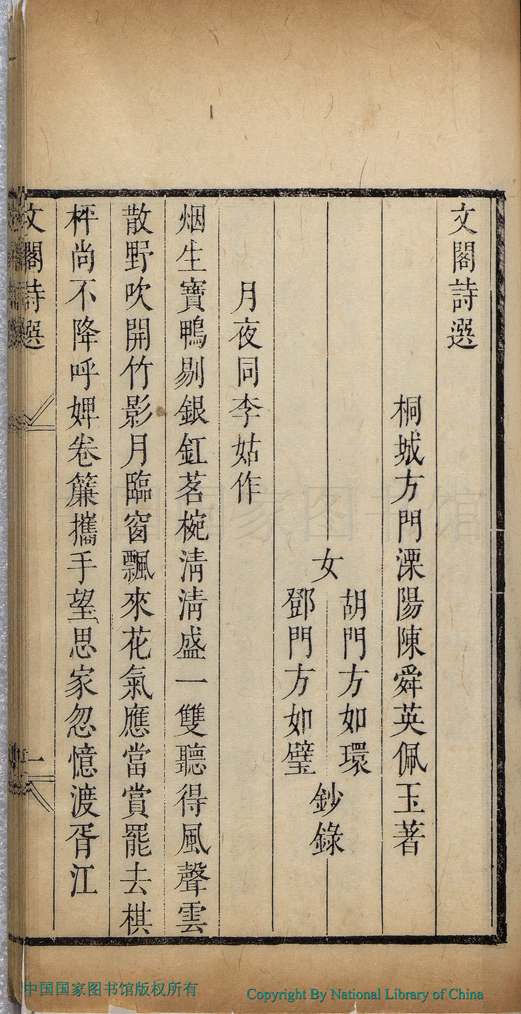 文閣詩選
桐城方門溧陽陳舜英佩玉著
女
胡門方如環
鄧門方如璧
鈔錄
月夜同李姑作
烟生寶鴨剔銀釭茗椀淸淸盛一雙聽得風聲雲
散野吹開竹影月臨窗飄來花氣應當賞罷去棋
枰尚不降呼婢卷簾攜手望思家忽憶渡胥江
文閣詩選
一
中国国家图书馆
中国国家图书馆版权所有
Copyright By National Library of China